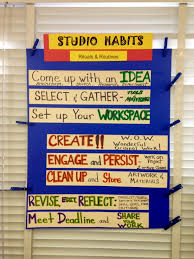 STUDIO HABITS
Rituals & Routines
Come up with an IDEA
SELECT & GATHER- TOOLS
Set up Your WORKSPACE
CREATE!! W.O.W.
Wonderful
Original Work!
ENGAGE and PERSIST Work on Project
CLEAN UP and Store ARTWORK &
MATERIALS
REVISE, EDIT, REFLECT.
Meet Deadline and SHARE
YOUR
WORK